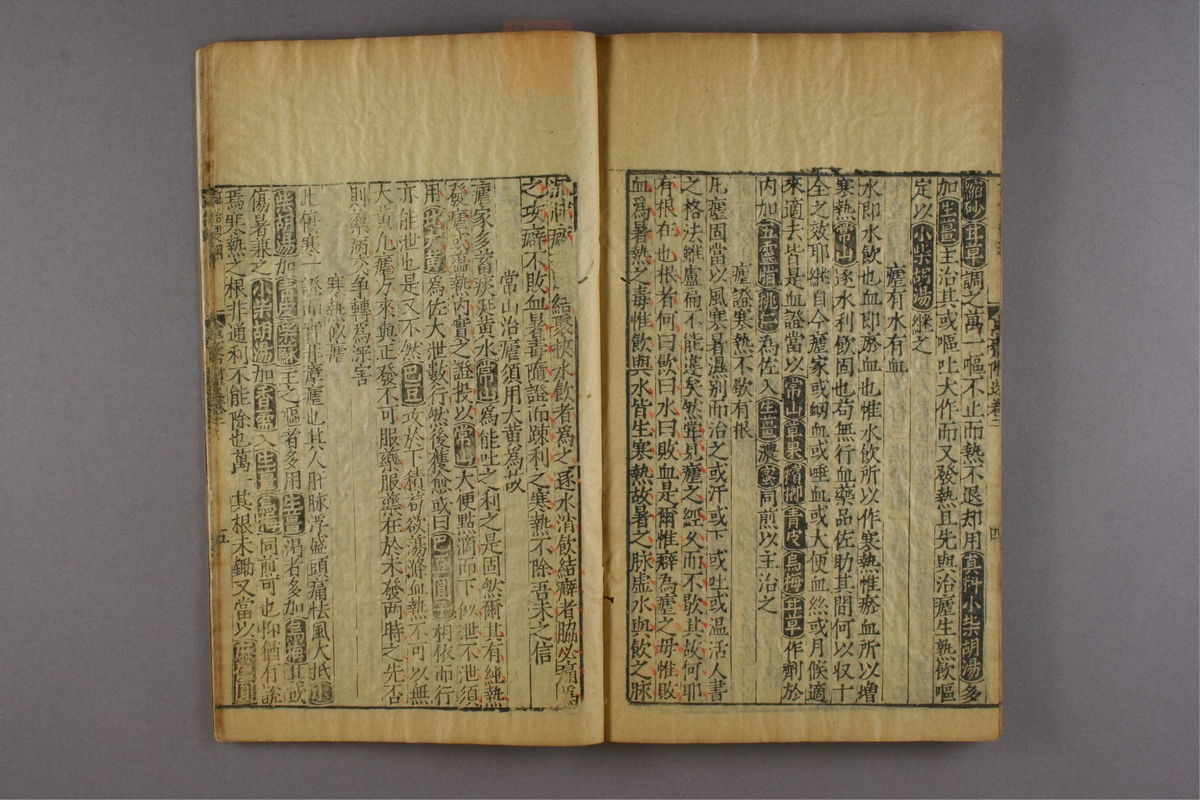 縮砂甘草調之萬一嘔不止而熱不退却用真料小柴胡湯多
加生薑主治其或嘔吐大作而又發熱且先與治瘧生熟飲嘔
定以小柴胡湯繼之
瘧有水有血
水即水飲也血即瘀血也惟水飲所以作寒熱惟瘀血所以增
寒熱常山逐水利飲固也苟無行血藥品佐助其間何以收十
全之效耶繼自今瘧家或衂血或唾血或大便血絲或月候適
來適去皆是血證當以常山草果檳榔青皮烏梅甘草作劑於
內加五靈脂桃仁為佐入生薑濃蜜同煎以主治之
瘧證寒熱不歇有根
凡瘧固當以風寒暑濕別而治之或汗或下或吐或温活人書
之格法雖盧扁不能違矣然嘗見瘧之經久而不歇其故何耶
有根在也根者何曰飲曰水曰敗血是爾惟癖為瘧之母惟敗
血為暑熱之毒惟飲與水皆生寒熱故暑之脉虛水與飲之脉
結聚挾水飲者為之逐水消飲結癖者脇必痛為
之攻癖不敗血暑毒隨證而踈利之寒熱不除吾未之信
常山治瘧須用大黃為故
瘧家多蓄痰涎黃水常山為能吐之利之是固然爾其有純熱
發瘧或温熱內實之證投以常山大便點滴而下似泄不泄須
用北大黃為佐大泄數行然後獲愈或曰巴豆圓子相依而行
亦能泄也是又不然巴豆攻於下積苟欲蕩滌血熱不可以無
大黃凡瘧方來與正發不可服藥服藥在於未發两時之先否
則藥病交爭轉為深害
寒熱似瘧
此傷寒證而實非瘴瘧也其人肝脉浮盛頭痛怯風大抵
柴胡湯加主之嘔者多用生薑渴者多加烏梅其或
傷暑兼之小柴胡湯加香薷入生薑烏梅同煎可也抑猶有說
焉寒熱之根非通利不能除也萬一其根未鋤又當以
五
四